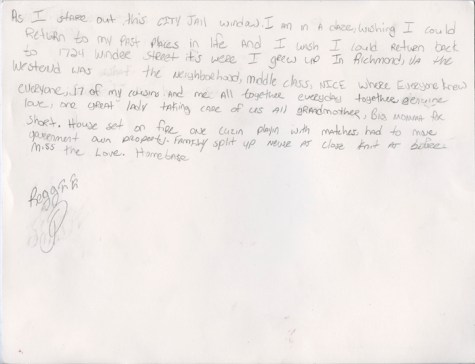 As I stare out this CITY Jail window. I am in A daze, wishing I could
Return to my past places in life And I wish I could Return back
to 1724 Winder Street it's were I grew up In Richmond, VA the
Westend was the neighborhood, middle class, NICE where Everyone knew
everyone, 17 of my cousins and me All together everyday together genuine
love, one great lady taking care of us all grandmother, Big momma for
short. House set on fire one cuzin playn with matches had to move
government own property. Family split up never as close knit as before
miss the Love. Homebase